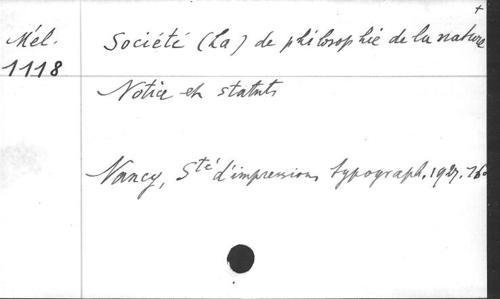 +
Mél. Société (La) de philosophie de la nature
1118
Notice et statuts
Nancy, Sté d'impressions typograph. 1927.